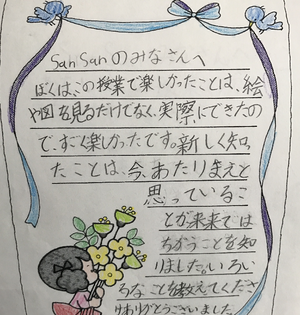 SanSanのみなさんへ
ぼくは、この授業で楽しかったことは、絵
や図を見るだけでなく、実際にできたの
で、すごく楽しかったです。新しく知っ
たことは、今、あたりまえと
思っているこ
とが未来では
ちがうことを知
りました。いろい
ろなことを教えてくださ
りありがとうございました。